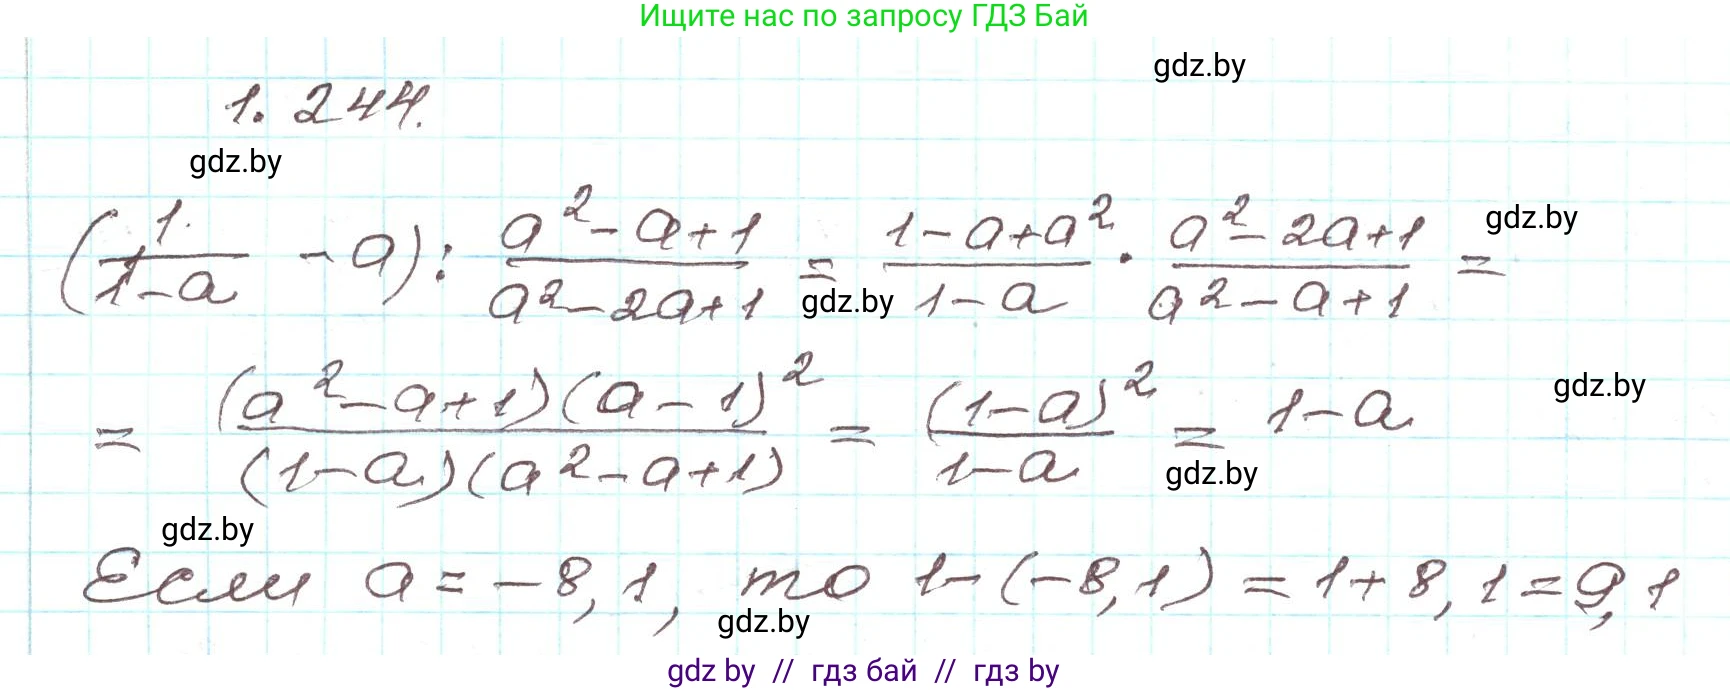 Ищите нас по запросу ГДЗ Бай
gdz.by
1.244.
gdz.by
(1/(1-a) - a) : (a²-a+1)/(a²-2a+1) = (1-a+a²)/(1-a) · (a²-2a+1)/(a²-a+1) =
gdz.by
gdz.by
= ((a²-a+1)(a-1)²)/((1-a)(a²-a+1)) = (1-a)²/(1-a) = 1-a
gdz.by
gdz.by
gdz.by
Если a = -8,1, то 1-(-8,1) = 1+8,1 = 9,1
gdz.by
gdz by // гдз бай // гдз by